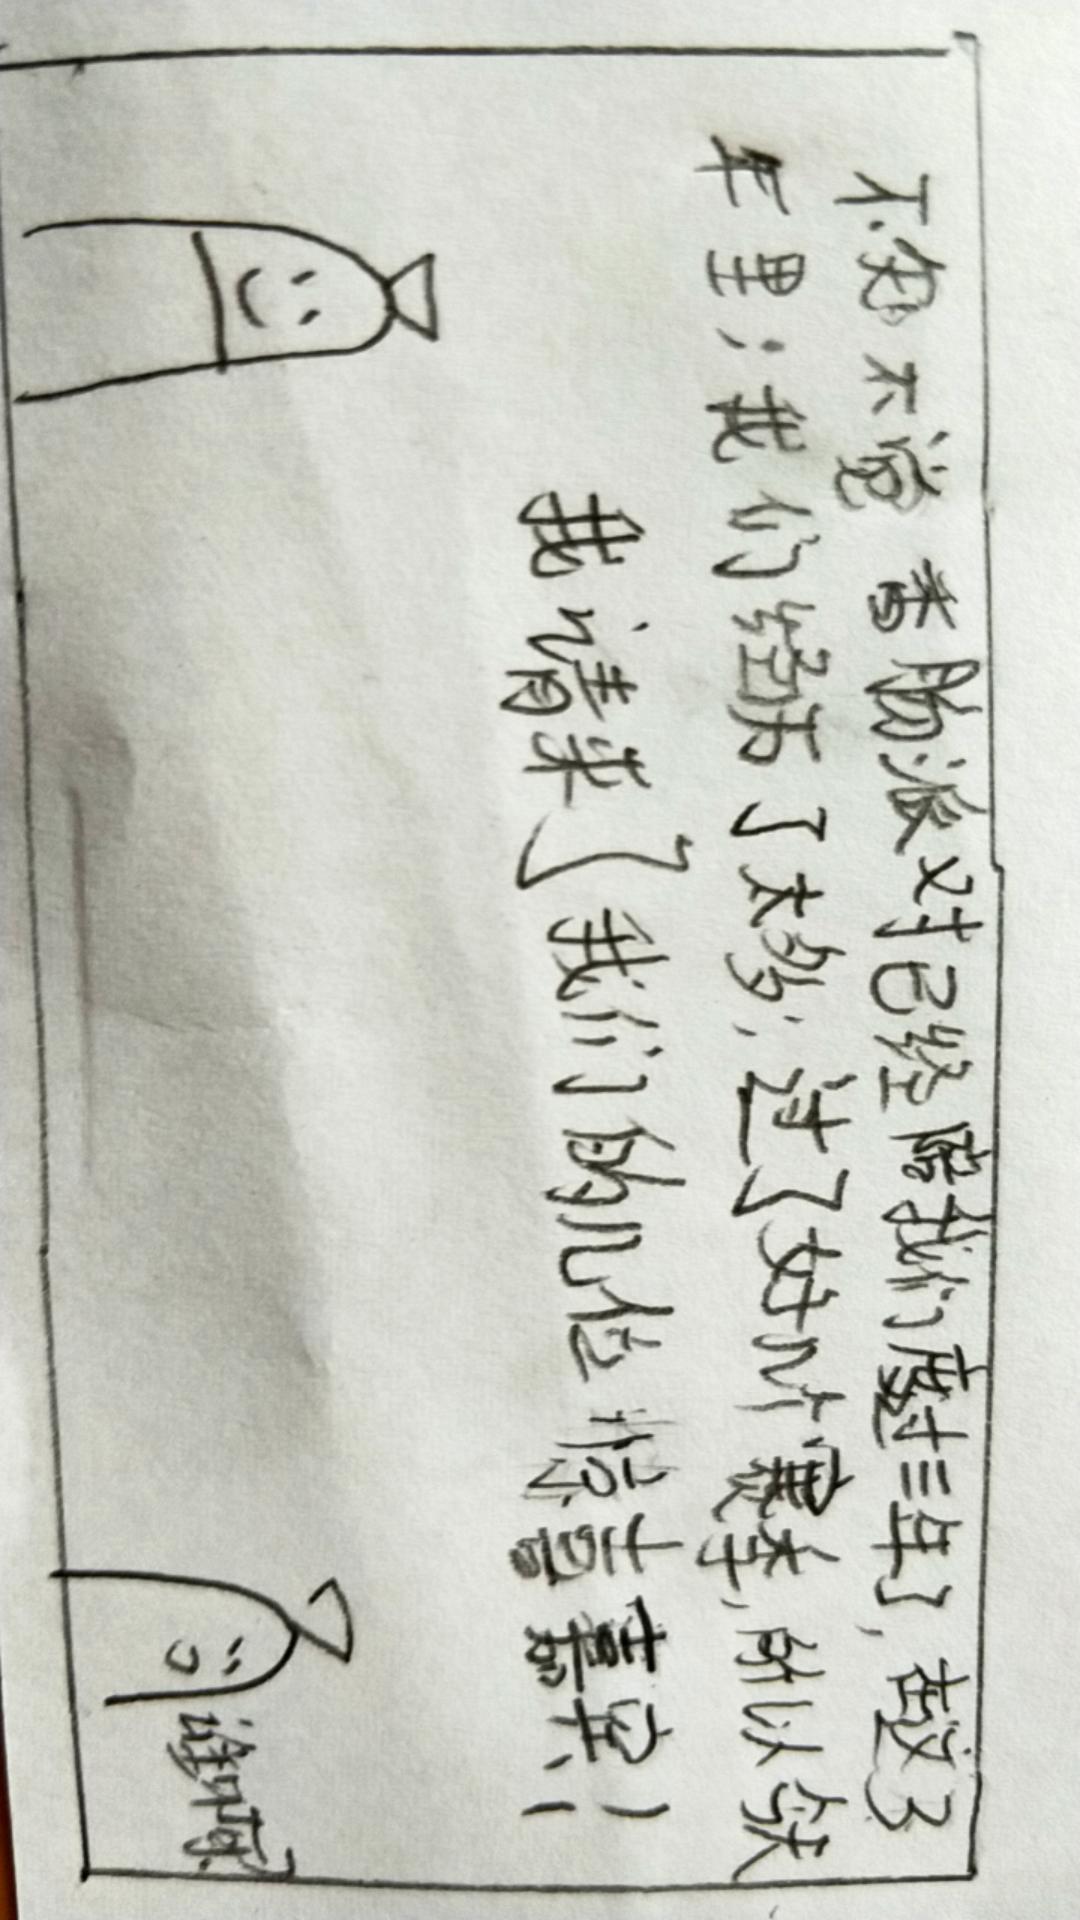 不知不觉 香肠派对已经陪我们度过三年了,在这3
年里;我们经历了太多;过了好几个赛季,所以
我请来了我们的几位惊喜嘉宾!